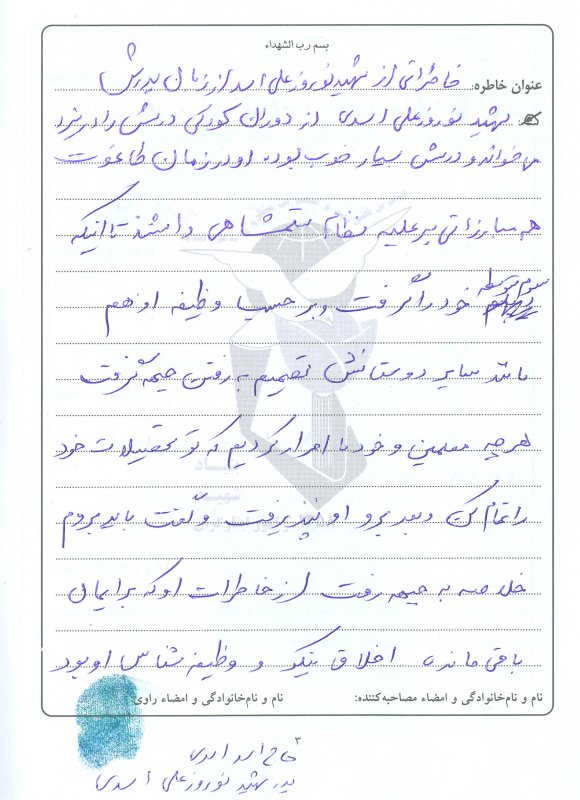 بسم رب الشهداء
عنوان خاطره: خاطراتی از شهید نوروز علی اسدی از زبان پدرش
شهید نوروز علی اسدی از دوران کودکی درسش را در نزد
می خواند و درسش بسیار خوب بوده او در زمان طاغوت
هم مبارزاتی بر علیه نظام ستمشاهی داشتند تا اینکه
سوم متوسطه خود را گرفت و بر حسب وظیفه او هم
مانند سایر دوستانش تصمیم به رفتن جبهه گرفت
هر چه معلمین و خود ما اصرار کردیم که تو تحصیلات خود
را تمام کن و بعد برو او نپذیرفت و گفت باید بروم
خلاصه به جبهه رفت از خاطرات او که برایمان
باقی مانده اخلاق نیکو و وظیفه شناسی او بود
نام و نام‌خانوادگی و امضاء مصاحبه‌کننده: نام و نام‌خانوادگی و امضاء راوی:
۳
حاج اسد اسدی
پدر شهید نوروز علی اسدی